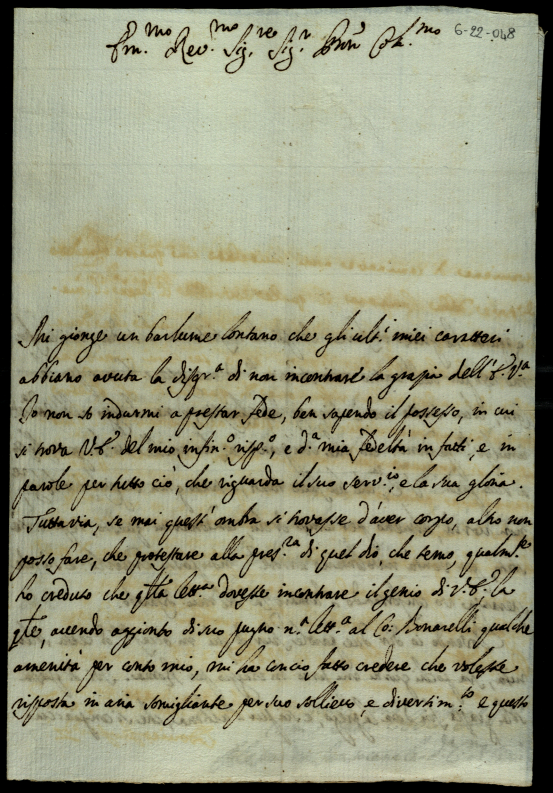 Em.mo Rev.mo Sig.re Sig.r Pron Col.mo 6-22-048
Mi gionge un barlume lontano che gli ulti miei caratteri
abbiano avuta la disgr.a di non incontrare la grazia dell'E.V.a
Io non so indurmi a prestar fede, ben sapendo il possesso, in cui
si trova V.E. del mio infin.o risp.o, e d.a mia fedeltà in fatti, e in
parole per tutto ciò, che riguarda il suo serv.io, e la sua gloria.
Tuttavia, se mai quest'ombra si trovasse d'aver corpo, altro non
posso fare, che protestare alla pres.za di quel dio, che temo, qualm.te
ho creduto che qta lett.a dovesse incontrare il genio di V.E., la
qle, avendo aggionto di suo pugno n.a lett.a al Co: Bonarelli qualche
amenità per conto mio, mi ha con ciò fatto credere che volesse
risposta in aria somigliante per suo sollievo, e divertim.to, e questo